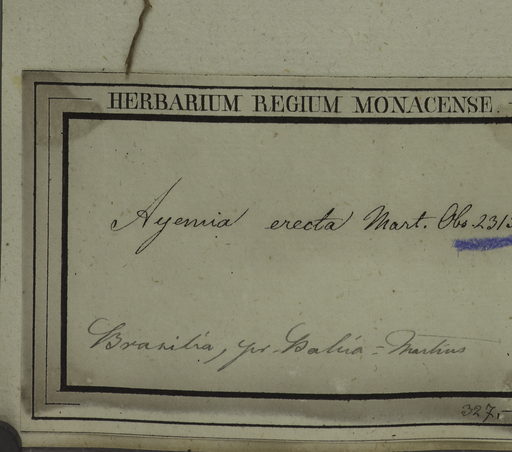 HERBARIUM REGIUM MONACENSE.
Ayenia erecta Mart. Obs. 2313
Brasilia, pr. Bahia - Martius
327.-